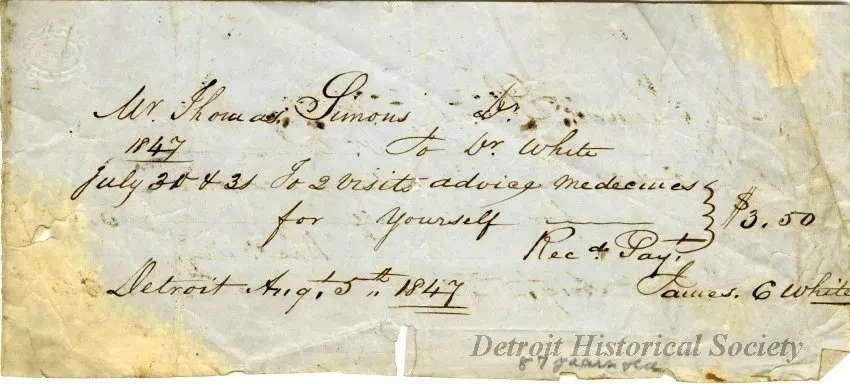 Mr. Thomas Simons Dr
1847 To Dr. White
July 30 & 31 To 2 visits advice medecines
for yourself $3.50
Rec d Payt,
Detroit Augt 5th 1847 James. C White
Detroit Historical Society
87 years old